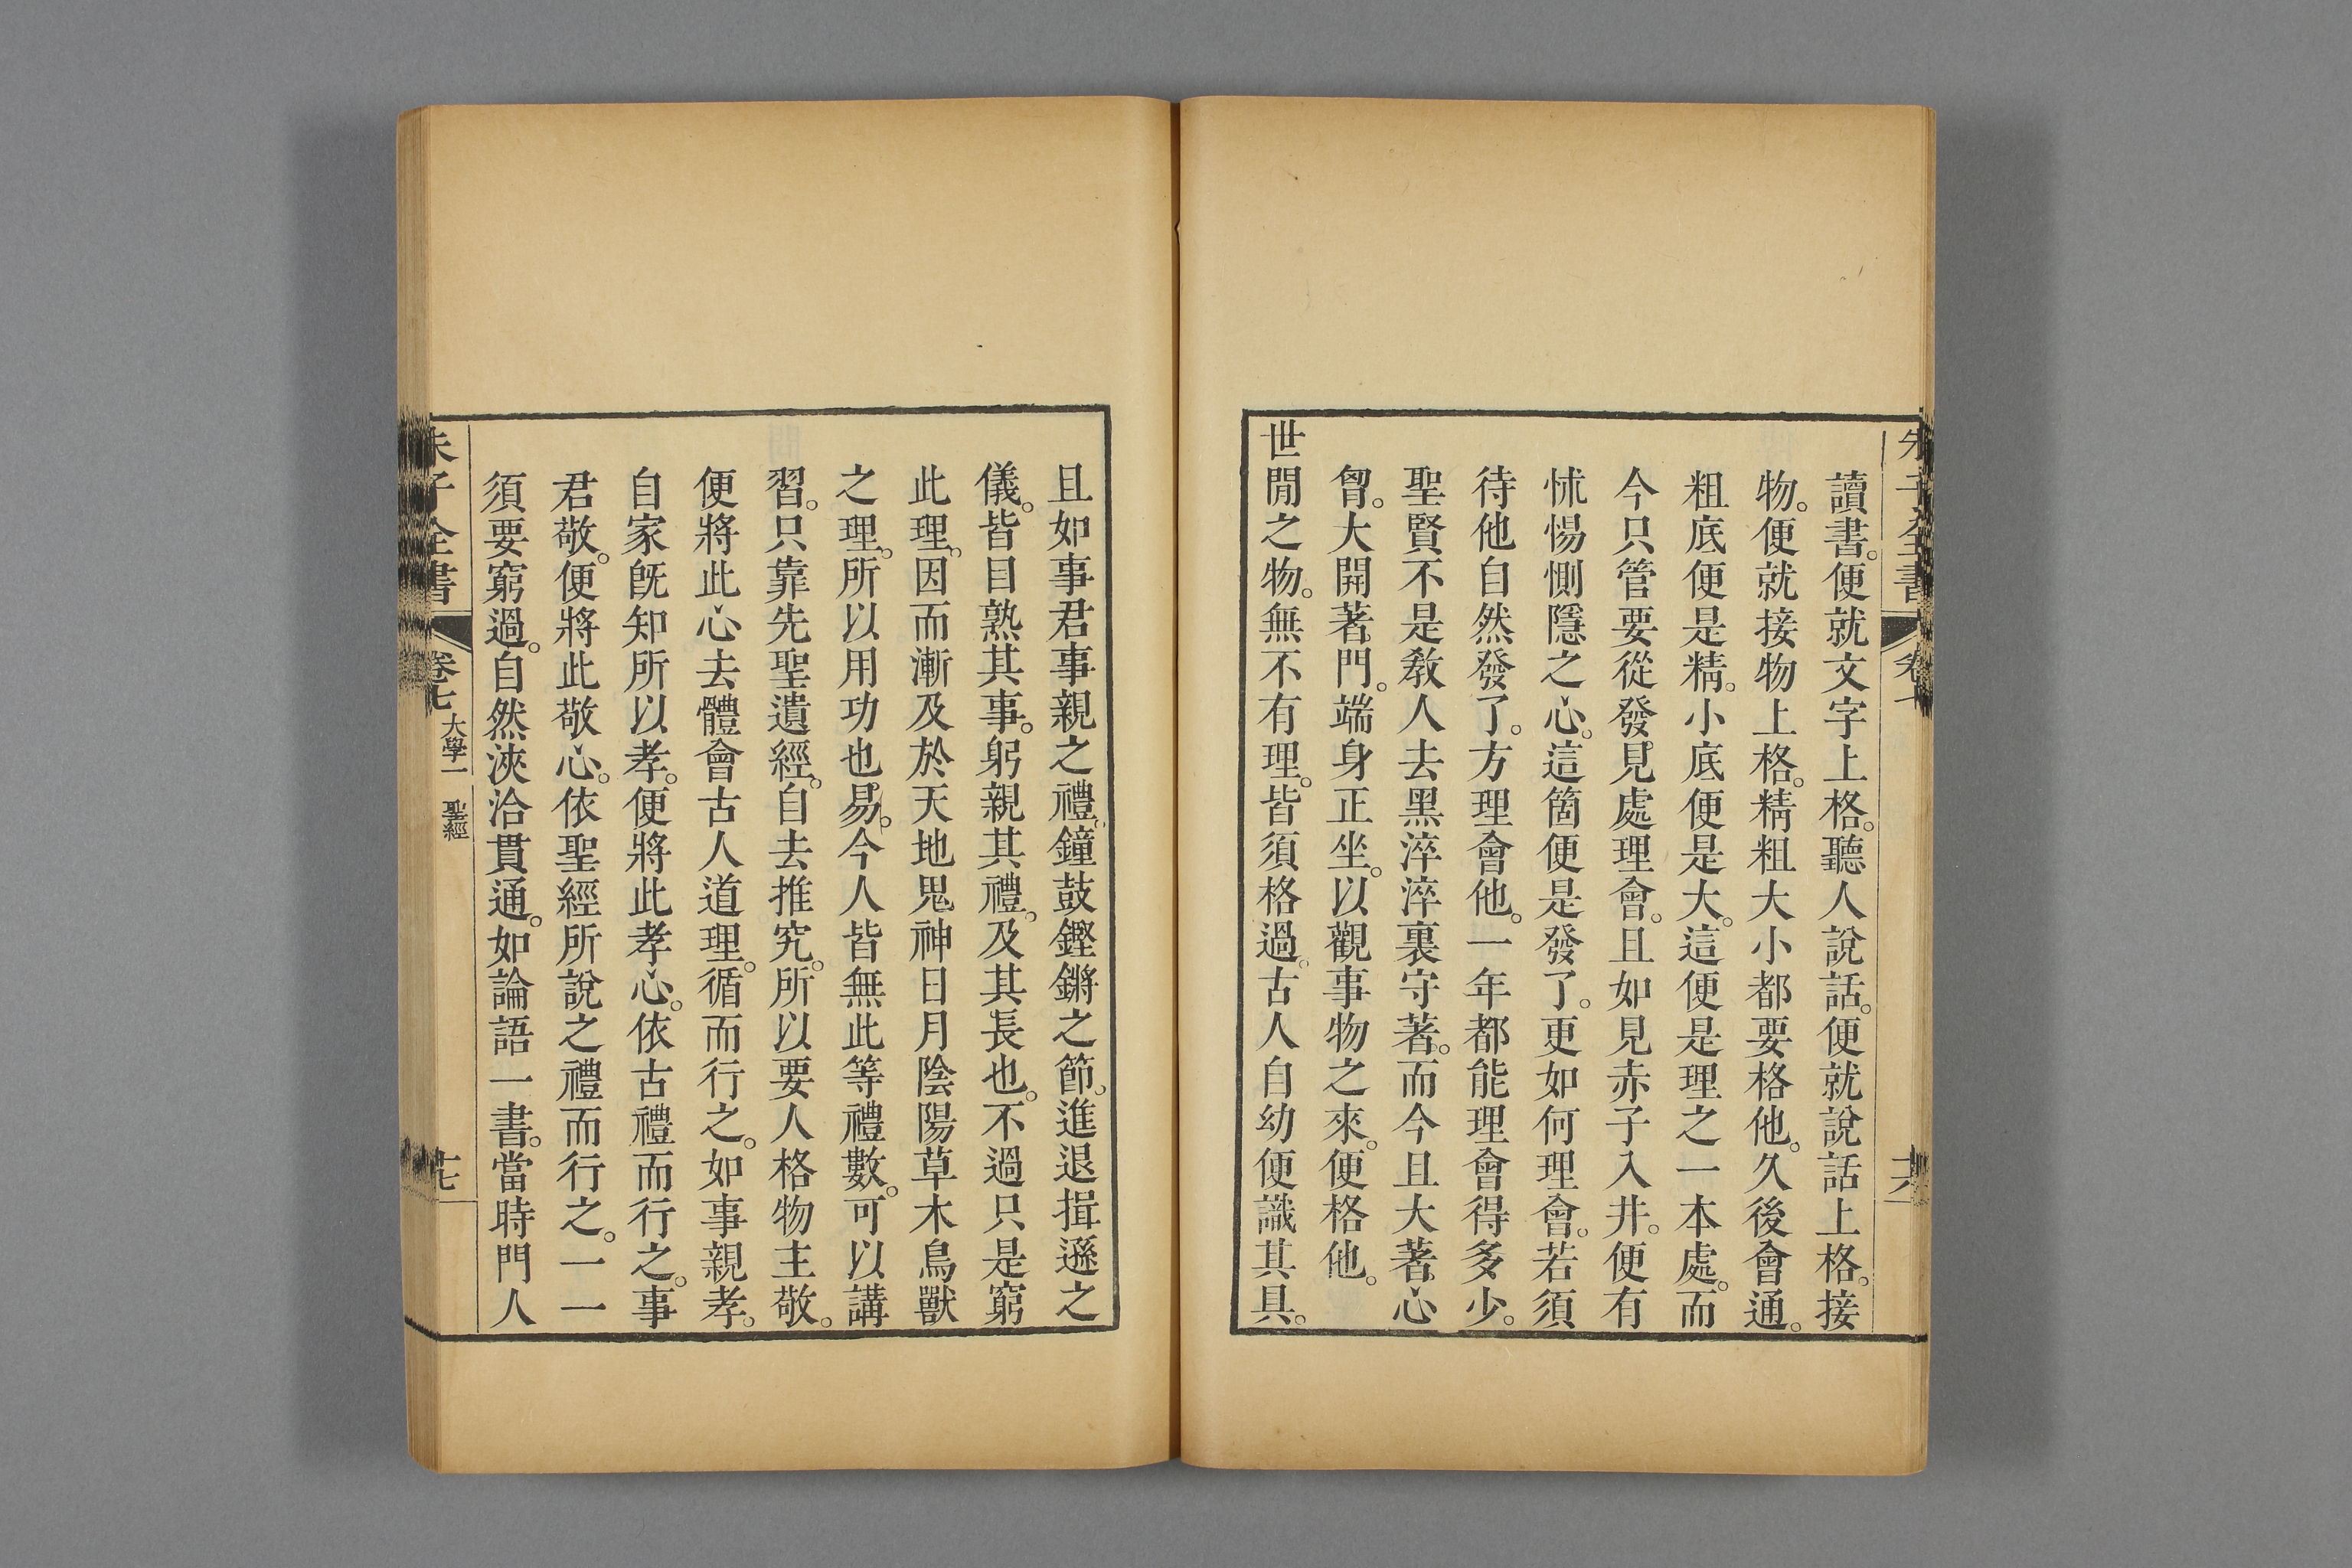 讀書。便就文字上格。聽人說話。便就說話上格。接
物。便就接物上格。精粗大小都要格他。久後會通。
粗底便是精。小底便是大。這便是理之一本處。而
今只管要從發見處理會。且如見赤子入井。便有
怵惕惻隱之心。這箇便是發了。更如何理會。若須
待他自然發了。方理會他。一年都能理會得多少。
聖賢不是敎人去黑淬淬裏守著。而今且大著心
胷。大開著門。端身正坐。以觀事物之來。便格他。
世閒之物。無不有理。皆須格過。古人自幼便識其具。
且如事君事親之禮。鐘鼓鏗鏘之節。進退揖遜之
儀。皆目熟其事。躬親其禮。及其長也。不過只是窮
此理。因而漸及於天地鬼神日月陰陽草木鳥獸
之理。所以用功也易。今人皆無此等禮數。可以講
習。只靠先聖遺經。自去推究。所以要人格物主敬。
便將此心去體會古人道理。循而行之。如事親孝。
自家旣知所以孝。便將此孝心。依古禮而行之。事
君敬。便將此敬心。依聖經所說之禮而行之。一一
須要窮過。自然浹洽貫通。如論語一書。當時門人
朱子全書
卷七
大學一 聖經
十七